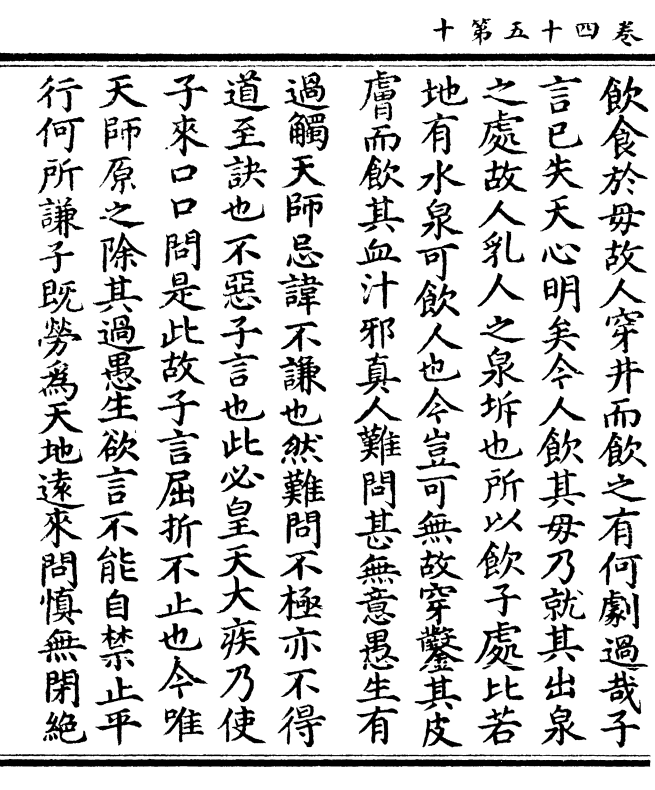 卷四十五第十
飲食於毋故人穿井而飲之有何劇過哉子
言已失天心明矣今人飲其毋乃就其出泉
之處故人乳人之泉坼也所以飲子處比若
地有水泉可飲人也今豈可無故穿鑿其皮
膚而飲其血汁邪真人難問甚無意愚生有
過觸天師忌諱不謙也然難問不極亦不得
道至訣也不惡子言也此必皇天大疾乃使
子來口口問是此故子言屈折不止也今唯
天師原之除其過愚生欲言不能自禁止平
行何所謙子既勞為天地遠來問慎無閉絕